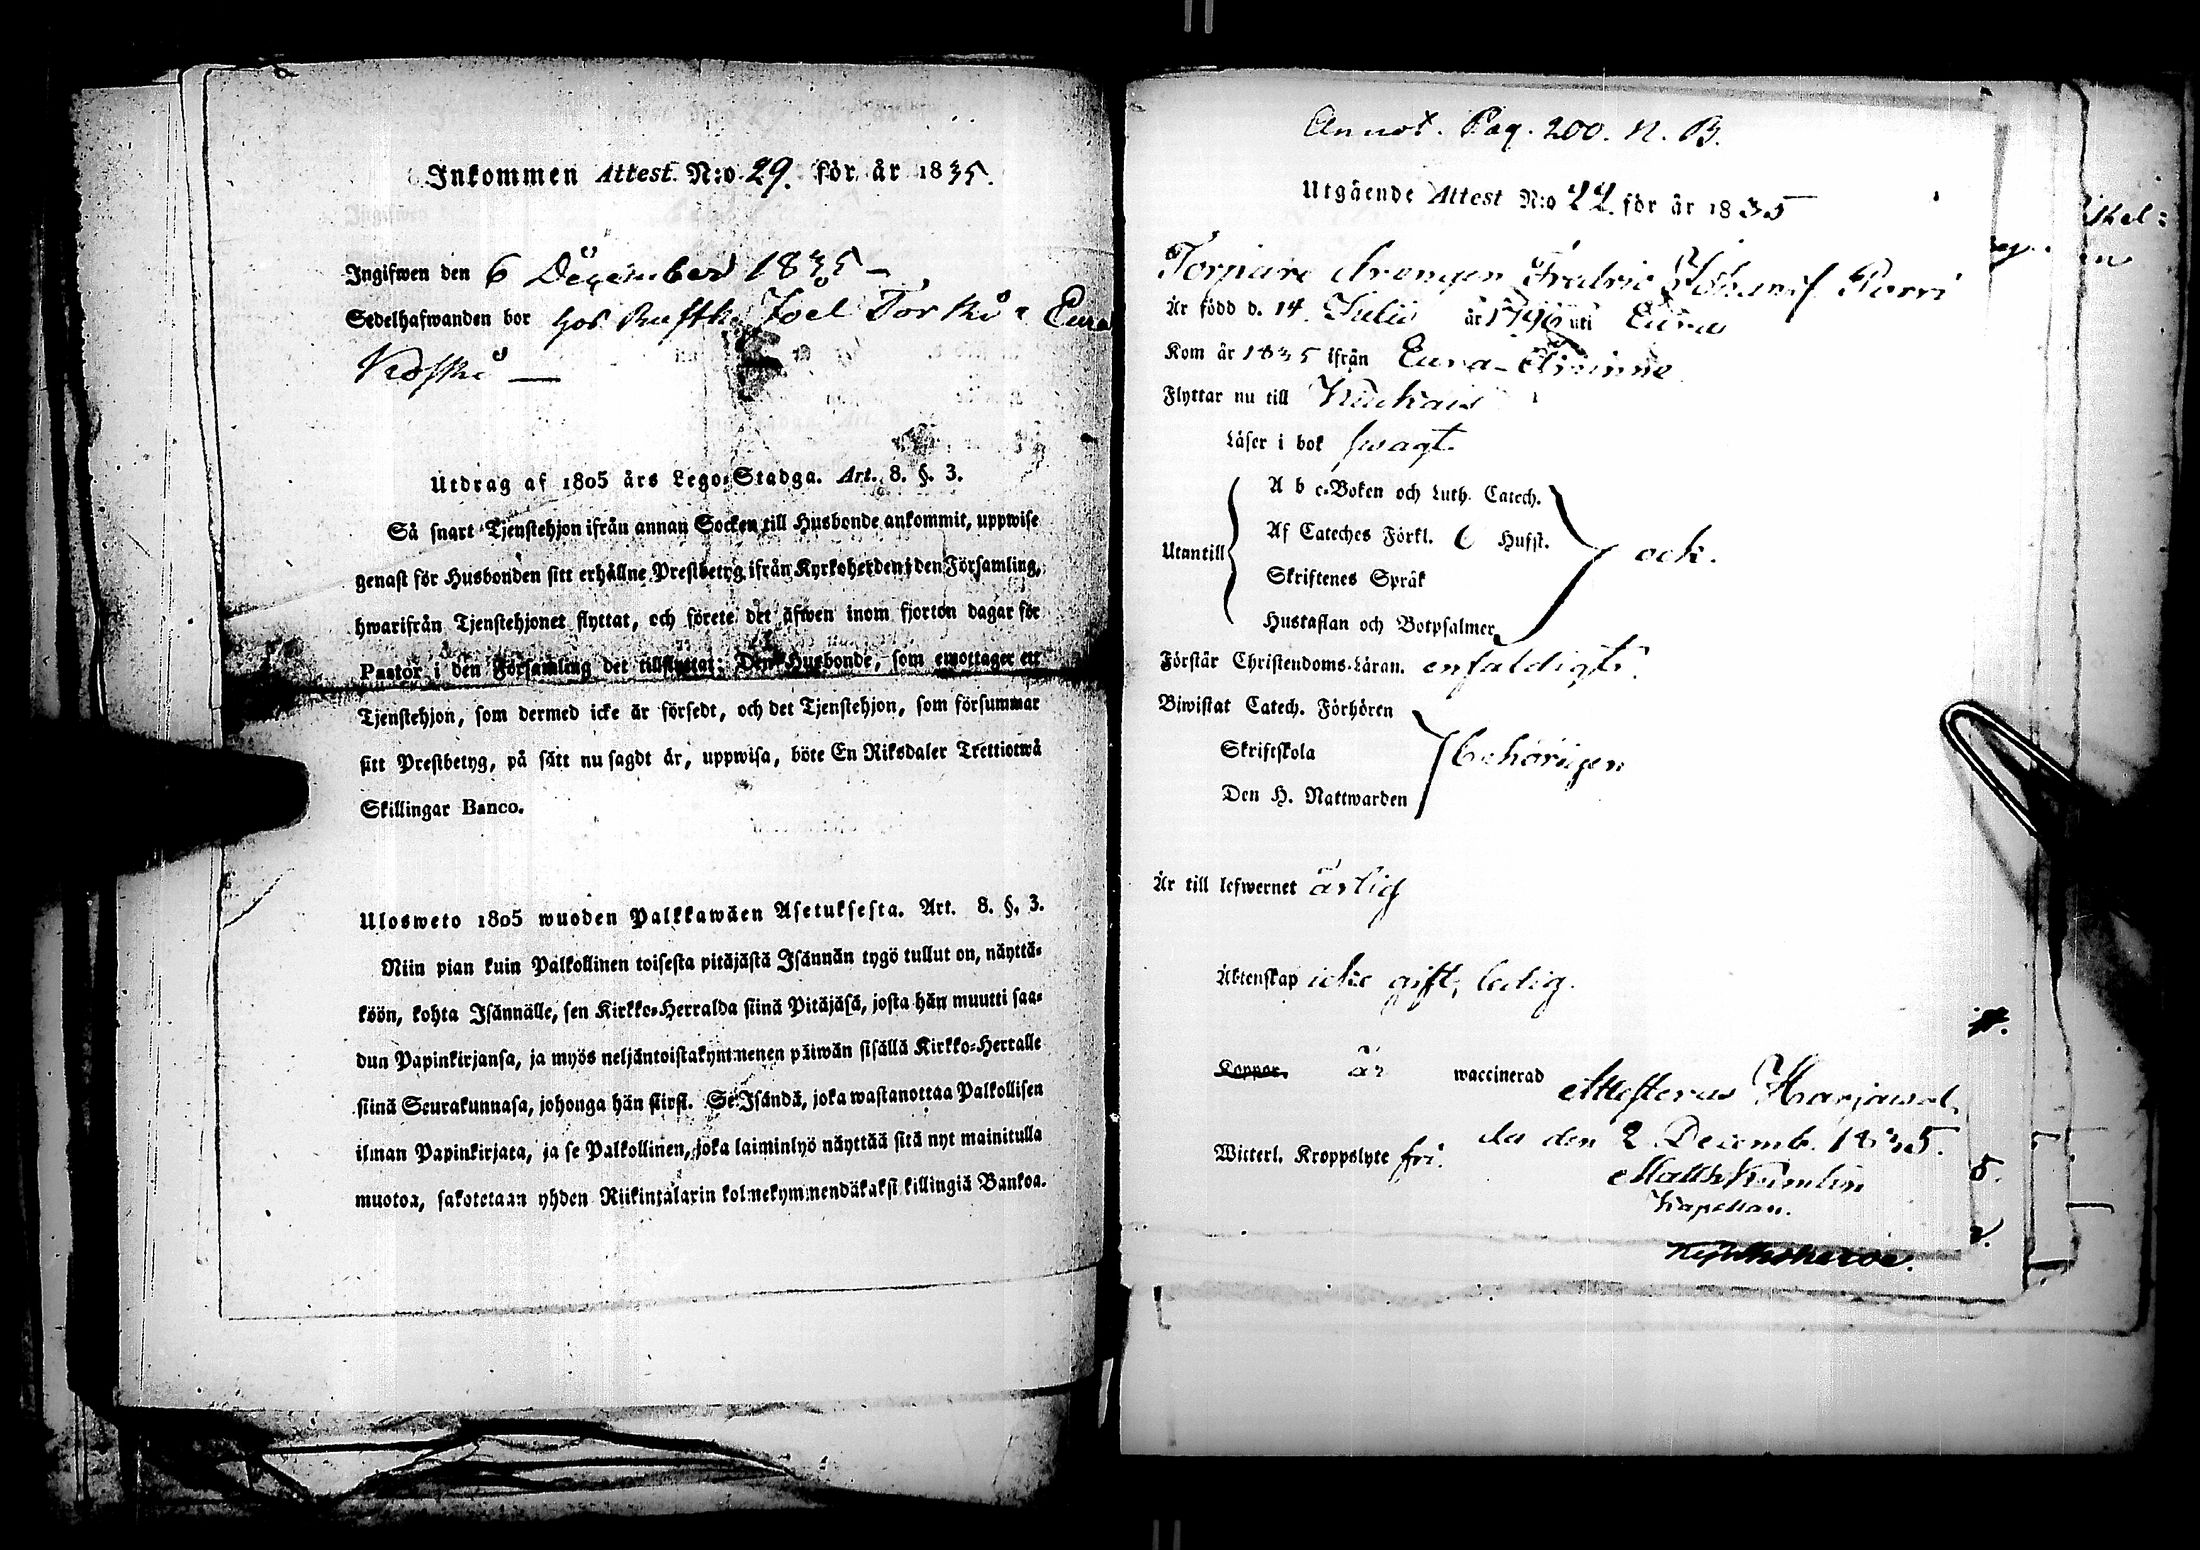 Inkommen Attest. N:o 29. för år 1835.
Ingifwen den 6 December 1835 –
Sedelhafwanden bor hos Rustk. Joel Torki i Eura
Koski —
Utdrag af 1805 års Lego-Stadga. Art. 8. §. 3.
Så snart Tjenstehjon ifrån annan Socken till Husbonde ankommit, uppwise
genast för Husbonden sitt erhållne Prestbetyg ifrån Kyrkoherden i den Församling,
hwarifrån Tjenstehjonet flyttat, och förete det äfwen inom fjorton dagar för
Pastor i den Församling det tillflyttat: Den Husbonde, som emottager ett
Tjenstehjon, som dermed icke är försedt, och det Tjenstehjon, som försummar
sitt Prestbetyg, på sätt nu sagdt är, uppwisa, böte En Riksdaler Trettiotwå
Skillingar Banco.
Ulosweto 1805 wuoden Palkkawäen Asetuksesta. Art. 8. §. 3.
Niin pian kuin Palkollinen toisesta pitäjästä Isännän tygö tullut on, näyttä-
köön, kohta Isännälle, sen Kirkko-Herralda siinä Pitäjäsä, josta hän muutti saa-
dun Papinkirjansa, ja myös neljäntoistakymmenen päiwän sisällä Kirkko-Herralle
siinä Seurakunnasa, johonga hän siirst. Se Isändä, joka wastanottaa Palkollisen
ilman Papinkirjata, ja se Palkollinen, joka laiminlyö näyttää sitä nyt mainitulla
muotoa, sakotetaan yhden Riikintalarin kolmekymmendäkaksi killingiä Bankoa.
Annot. Pag. 200. N. B.
Utgående Attest N:o 22. för år 1835
Torpare drengen Fredric Johansf. Porri
Är född d. 14 Julii år 1790 uti Eura
Kom år 1835 ifrån Eura-Åminne
Flyttar nu till Kiukais
Läser i bok swagt.
Utantill
A b c-Boken och Luth. Catech.
Af Cateches Förkl. 6 Hufst.
Skriftenes Språk
Hustaflan och Botpsalmer
ock.
Förstår Christendoms-Läran. enfaldigt.
Biwistat Catech. Förhören
Skriftskola
Den H. Nattwarden
behörigen
Är till lefwernet ärlig
Äktenskap icke gift, ledig.
Koppor. är waccinerad
Attesteras Harjawal-
la den 2 Decemb. 1835.
Witterl. Kroppslyte fri.
Matth Kumlin
Kapellan.